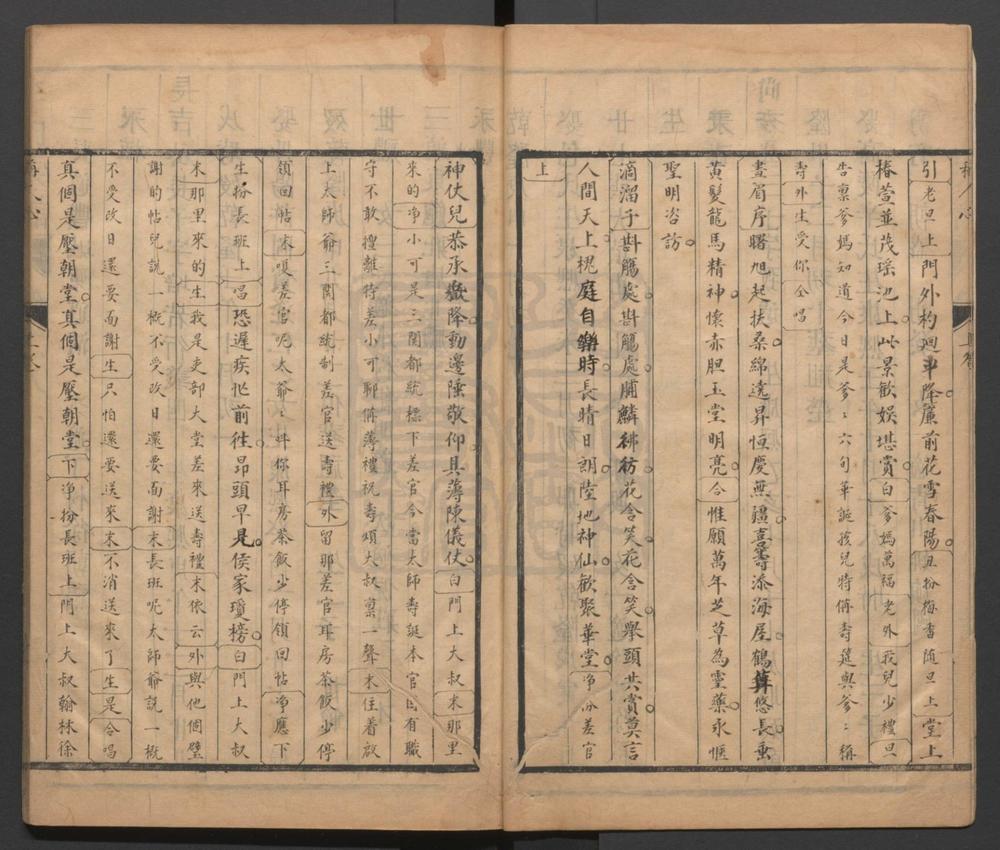 稱人心
引老旦上門外杓迴斗降簾前花雪春陽丑扮梅香随旦上堂上
椿萱並茂瑶池上此景歡娱堪賞白爹媽萬福老外我兒少禮旦
告禀爹媽知道今日是爹〻六旬華誕孩兒特俻壽筵與爹〻稱
壽外生受你仝唱
畫眉序曙旭起扶桑綿遠昇恒慶無疆喜籌添海屋鶴算悠長垂
黄髮龍馬精神懷赤胆玉堂明亮合惟願萬年芝草為靈藥永愜
聖明咨訪
滴溜子斟觴處斟觴處脯麟彿彷花含笑花含笑舉頭共賞莫言
人間天上槐庭自樂時長晴日朗陸地神仙歡聚華堂净扮差官
上
神仗兒恭承嶽降動邊陲敬仰具薄陳儀仗白門上大叔末那里
來的净小可是三関都統標下差官今當太師壽誕本官因有職
守不敢擅離待差小可聊俻薄禮祝壽煩大叔禀一聲末住着啟
上太師爺三関都統制差官送壽禮外留那差官耳房茶飯少停
領回帖末嗄差官呢太爺〻呌你耳房茶飯少停領回帖净應下
生扮長班上唱恐遲疾忙前往昂頭早見侯家瓊榜白門上大叔
末那里來的生我是吏部大堂差來送壽禮末依云外與他個璧
謝的帖兒説一概不受改日還要面謝末長班呢太師爺説一概
不受改日還要面謝生只怕還要送來末不消送來了生是合唱
真個是壓朝堂真個是壓朝堂下净扮長班上門上大叔翰林徐